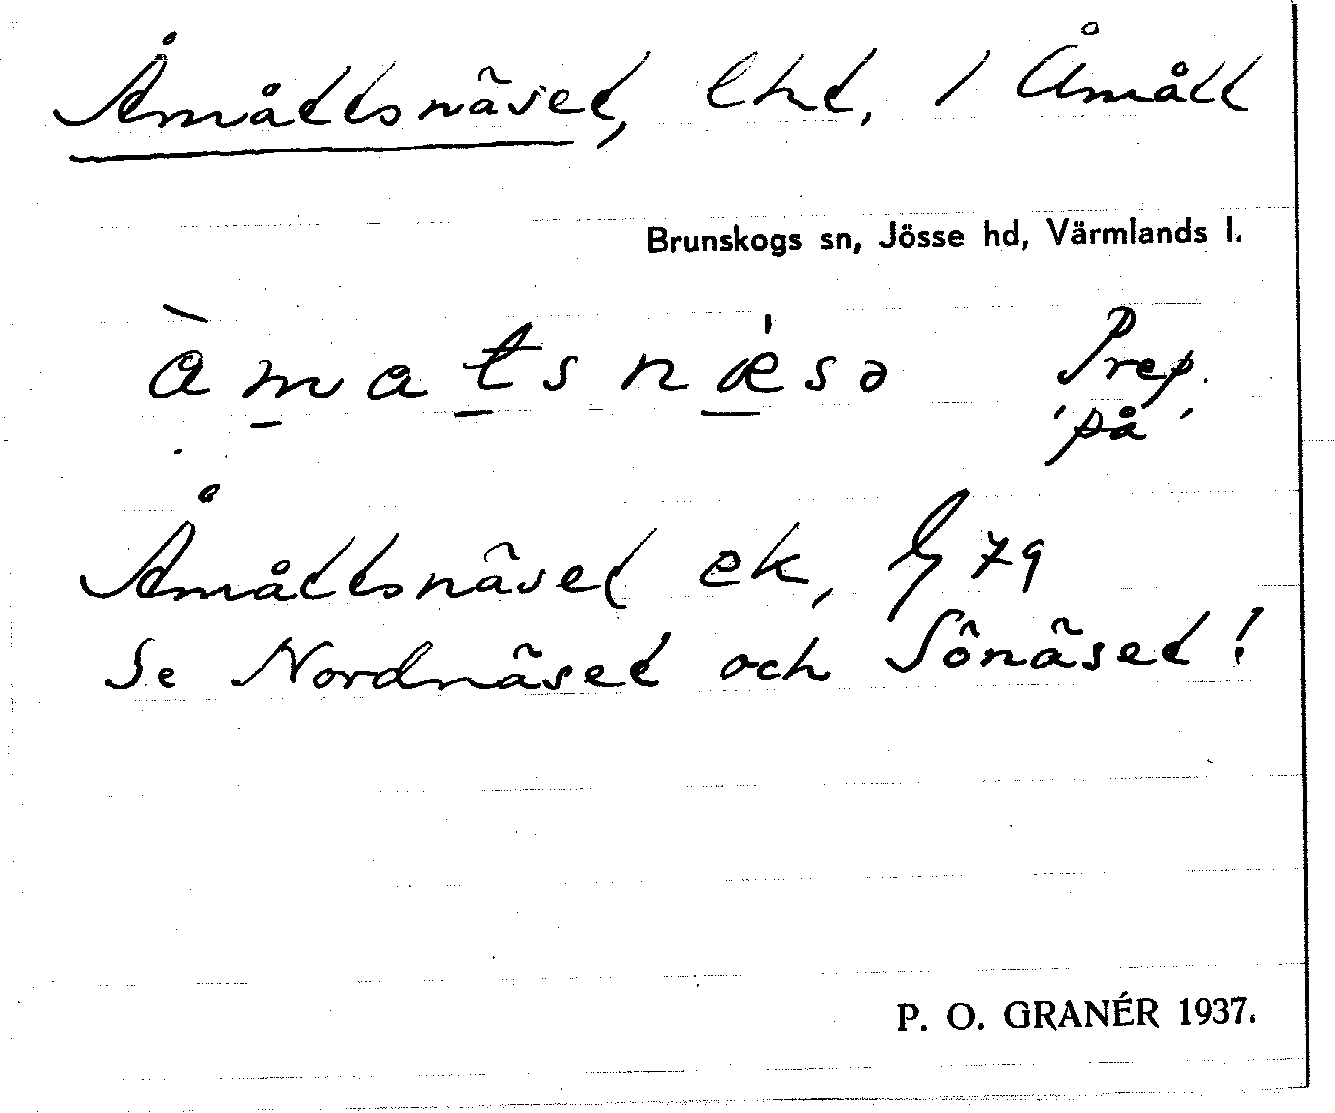 Åmåttsnäset, lht, 1 Åmått
Brunskogs sn, Jösse hd, Värmlands l.
àmatsnæ̍sə Prep.
'på'
Åmåttsnäset ek, 79
Se Nordnäset och Sönäset!
P. O. GRANÉR 1937.